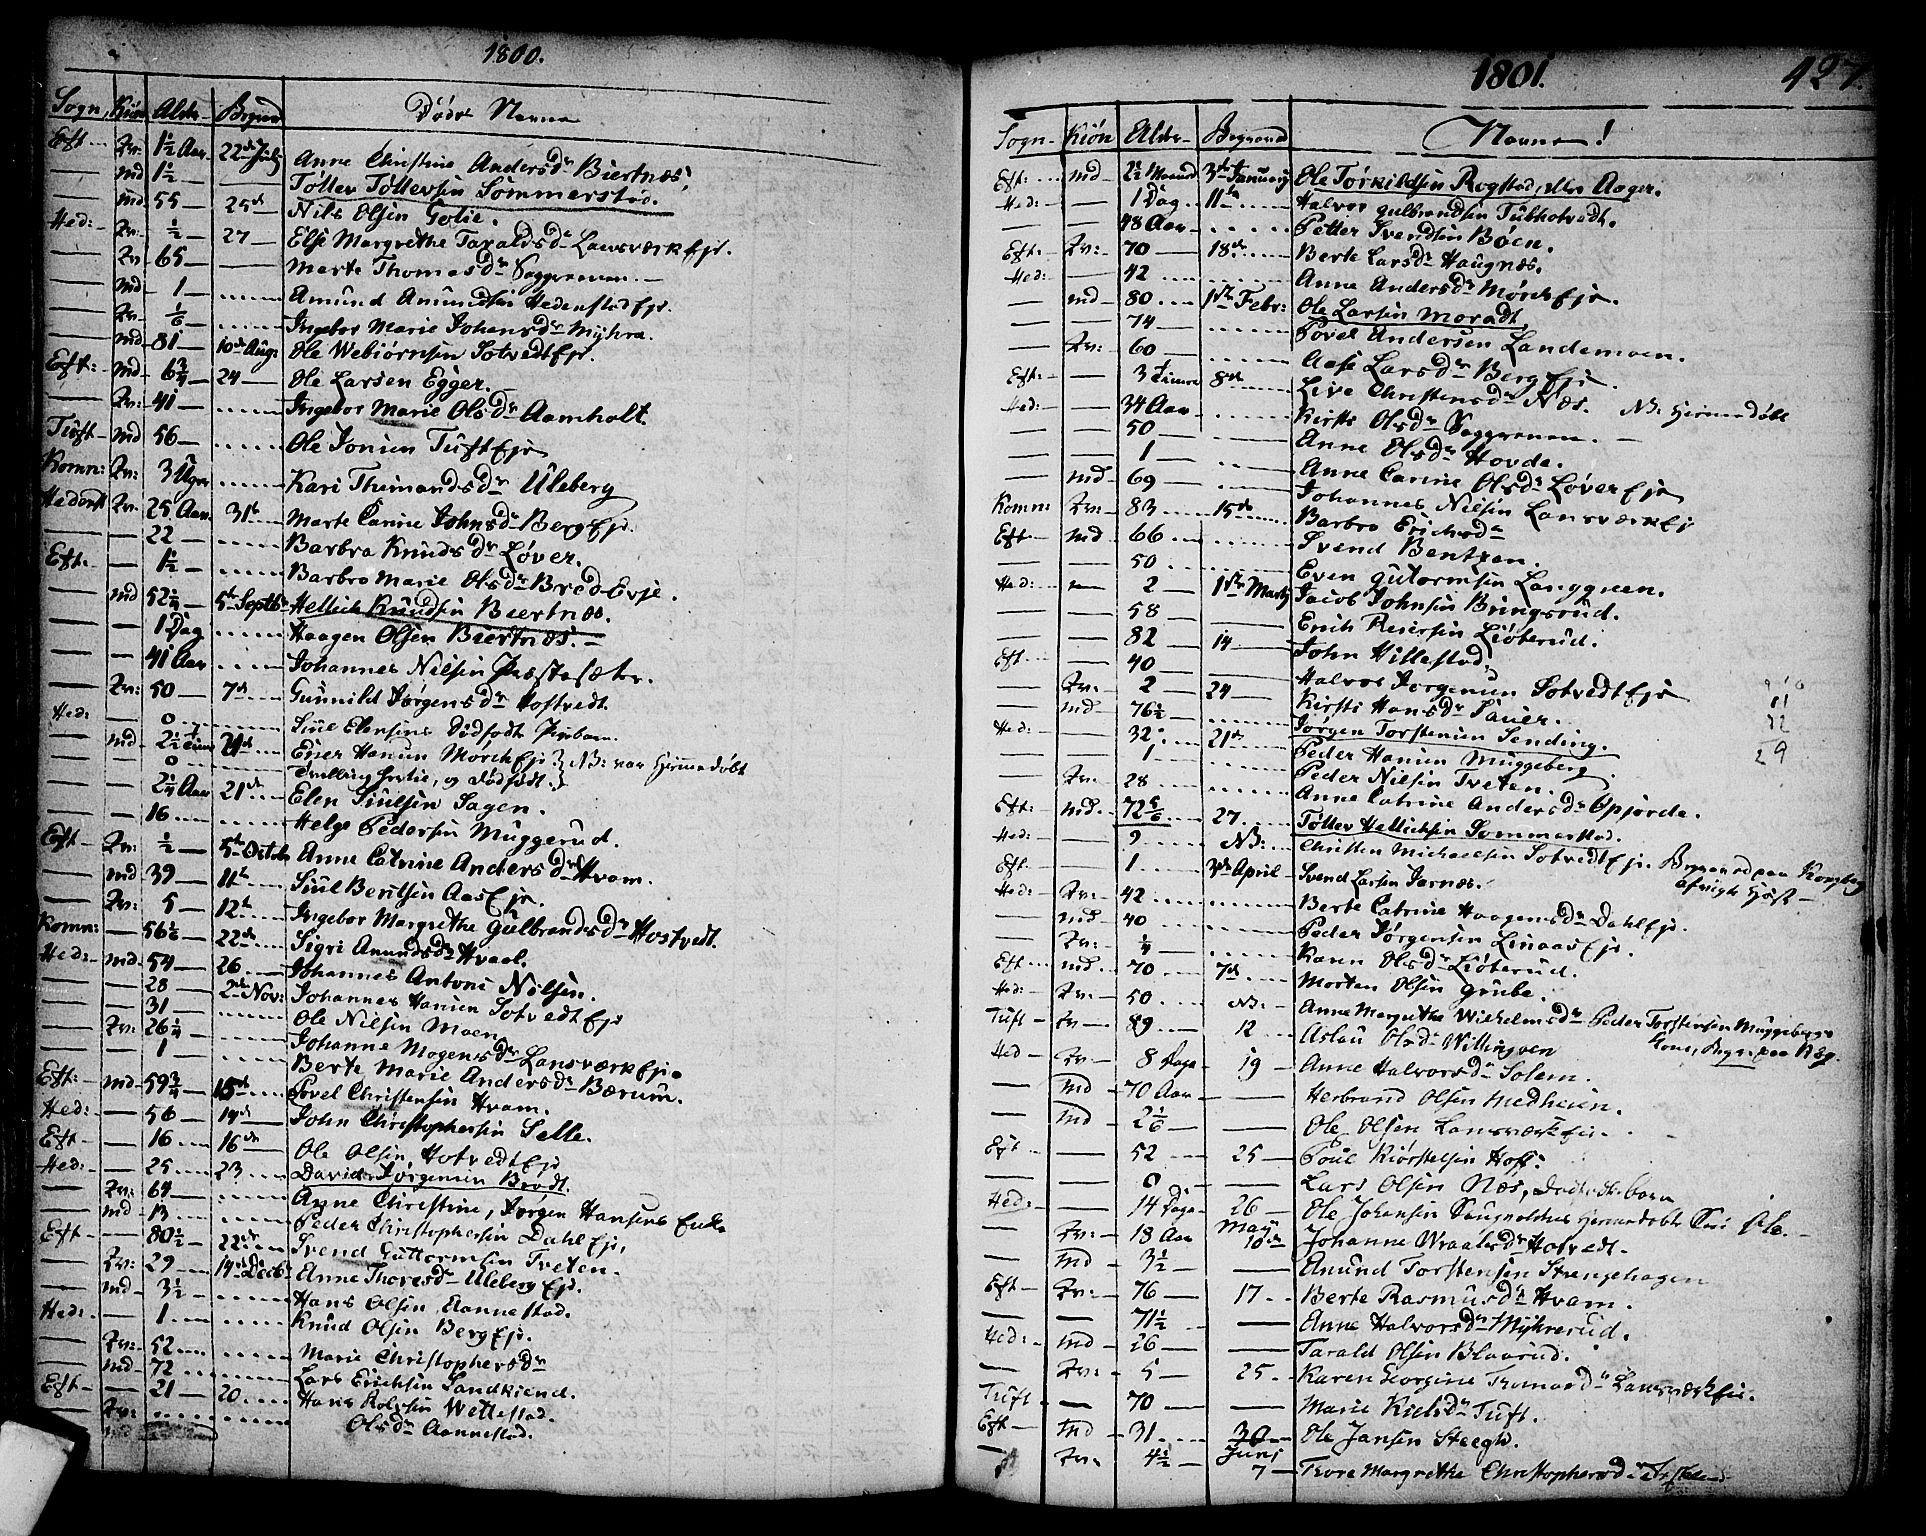 1800.
Sogn Kiön Alder Begravd Döde Navne
Eft Qv: 1½ Aar 22de July Anne Christine Andersdr Biertnæs,
— md 1½ — Töller Töllersen Sommerstad.
— md 55 — 25de Nils Olsen Golie.
Hed: Qv. ½ — 27 — Else Margrethe Taraldsdr Lansværk Eje.
— Qv 65 — — Marte Thomasdr Saggrenen —
— md 1 — Amund Amundsen Hedenstad Eje.
— Qv. 1/6 Ingebor Marie Johansdr Myhra.
— md 81 — 10de Aug: Ole Webiörnsen Sotvedt Eje.
Eft: md 6¾ — 24 — Ole Larsen Egger.
— Qv: 41 — Ingebor Marie Olsdr Aamholt.
Tuft md 56 — Ole Tuft Eje
Komn: Qv: 3 Uger Kari Uleberg
Qv. 25 Aar 31te Marte Carine Johnsdr Berg Eje.
— — 22 — Barbra Knudsdr Löver.
Eft. — 1½ Barbro Marie Olsdr Bred Evje.
— md 52¼ — 5te Septbr Hellich Knudsen Biertnæs.
— — 1 Dag Haagen Olsen Biertnæs. —
— — 41 Aar Johannes Nilsen Præstesæter.
— Qv: 50 — 7de Gunnild Jörgensdr Hostvedt.
Hed: — 0 Dödfödt
— md 2½ 21de Hansen Mörch Eje NB: var Hiemedöbt
— — 0 og dödfödt.
— — 2¼ Aar 21de Elen Sagen.
— — 16 Helge Pedersen Muggerud.
Eft — Qv: ½ — 5te Octob Anne Catrine Andersdr Hvam.
— md 39 — 11te Bentsen Aas Eje.
— Qv: 5 — 12te Ingebor Margrethe Gulbrandsdr Hostvedt.
Komn: — 56 1/6 — 22de Sigri Amundsdr Hvaal.
Hed: — md 54 — 26 Johannes Antoni Nilsen.
— — 28 — 2de Nov: Johannes Hansen Sotvedt Eje
— — 31 — Ole Nilsen Moen
— Qv: 26¼ — Johanne Mogensdr Lansværk Eje.
— — 1 — Berte Marie Andersdr Bærum.
Eft: md 59¾ — 15de Povel Christensen Hvam.
Hed: — 56 — 14de John Christophersen Selle.
Eft — 16 16de Ole Olsen Hotvedt Eje
Hed: — 25 23 David Jörgensen Brodt.
— Qv: 64 Anne Christine, Jörgen Hansens Enke
— md 13 Peder Christophersen Dahl Eje,
Eft — 80½ — 22de Svend Guttormsen Tveten.
— Qv: 29 — 14de Decb Anne Thoresdr Uleberg Eje.
— md 3½ — Hans Olsen Aannestad.
Hed: — 1 — Knud Olsen Berg Eje.
— Qv: 52 Marie Christophersdr
— md 72 Lars Erichsen Sandkiend.
Eft — — 21 — 20 Hans Rolvsen Wettestad.
— Qv: Olsdr Aannestad.
1801. 427.
Sogn Kiön Alder Begravd Navne!
Eft: md — 2½ Maaned 3de January Ole Torkildsen Rogstad, eller Aager.
Hed: — 1 Dag 11te Halvor Gulbrandsen
— 48 Aar Petter Svendsen Böen.
Eft: Qv: 70 — 18de Berte Larsdr Haugnæs.
Hed: — 42 Anne Andersdr Mörch Eje.
— md 80 1ste Febr: Ole Larsen Moradt
— — 74 — Povel Andersen Landemoen.
— Qv: 60 — Aase Larsdr Berg Eje.
Eft: — 3 8de Live Christensdr Næs. NB: Hiemedöbt
Hed: — 34 Aar Kirsti Olsdr Saggrenen. —
— — 50 — Anne Olsdr Hovde.
— — 1 Anne Carine Olsdr Löver Eje
— md — 69 Johannes Nilsen Lansværk Eje
Komn: Qv: — 83 15de Barbro Erichsdr
Eft — md — 66 Svend Bentzen.
— — 50 Even Gutormsen Langgreen.
Hed: — 2 1ste Marty Jacob Johnsen Bringsrud.
— — 58 Erich Liöterud.
— — 82 14 John Hillestad.
Eft — 40 — Halvor Jörgensen Sotvedt Eje
— Qv. 2 — 24 Kirsti Hansdr
— md 76½ — Jörgen Torstensen Sending.
Hed: — 32 21de Peder Hansen Muggeberg
— — 1 Peder Nilsen Tveten.
— Qv: 28 Anne Catrine Andersdr Opjorde.
Eft: — md. 72 5/6 27 Töller Hellichsen Sommerstad.
Hed: — — 9 NB: Christen Michaelsen Sotvedt Eje. Begraved paa Kongsberg
Eft — 1 April Svend Larsen Jarnæs.
Hed: Qv: 42 Berte Catrine Haagensdr Dahl Eje.
— md 40 Peder Jörgensen Linaas Eje.
— Qv: ¼ Karen Olsdr Liöterud.
Eft md. 70 7de Morten Olsen Grube.
Hed: Qv: — 50 NB: Anne Margrethe Wilhelmsdr Peder Torstensen Muggebergs
Kone, Begr. paa
Tuft Qv — 89 12 Aslau Olsdr Willingven
Hed — Qv — 8 Dage — 19 — Anne Halvorsdr Solem.
— md — 70 Aar — — Herbrand Olsen Medheien.
— md 2 1/6 — Ole Olsen Lansværk Eje.
Eft — 52 25 — Poul Kiörstelsen Hoft.
— — 0 — — Lars Olsen Næs, barn
Hed: — 14 Dage 26 — Ole Johansen Hiemedöbt Ole. —
— Qv: — 18 Aar May 10de Johanne Wraalsdr Hotvedt.
— md — 3½ — Amund Torstensen Strengehagen
Eft — Qv: — 76 — 17 Berte Rasmusdr Hvam.
— — 71½ — Anne Halvorsdr Myhrerud.
Hed: md 26 — Tarald Olsen Blaarud.
— Qv: — 5 — 25 Karen Georgine Lansværk Eje.
Tuft — 70 — Marie Kielsdr Tuft.
Eft — md — 31 30 — Ole Jansen Steegh.
— Qv. 4½ — Juni 7 — Tore Margrethe Christophersdr